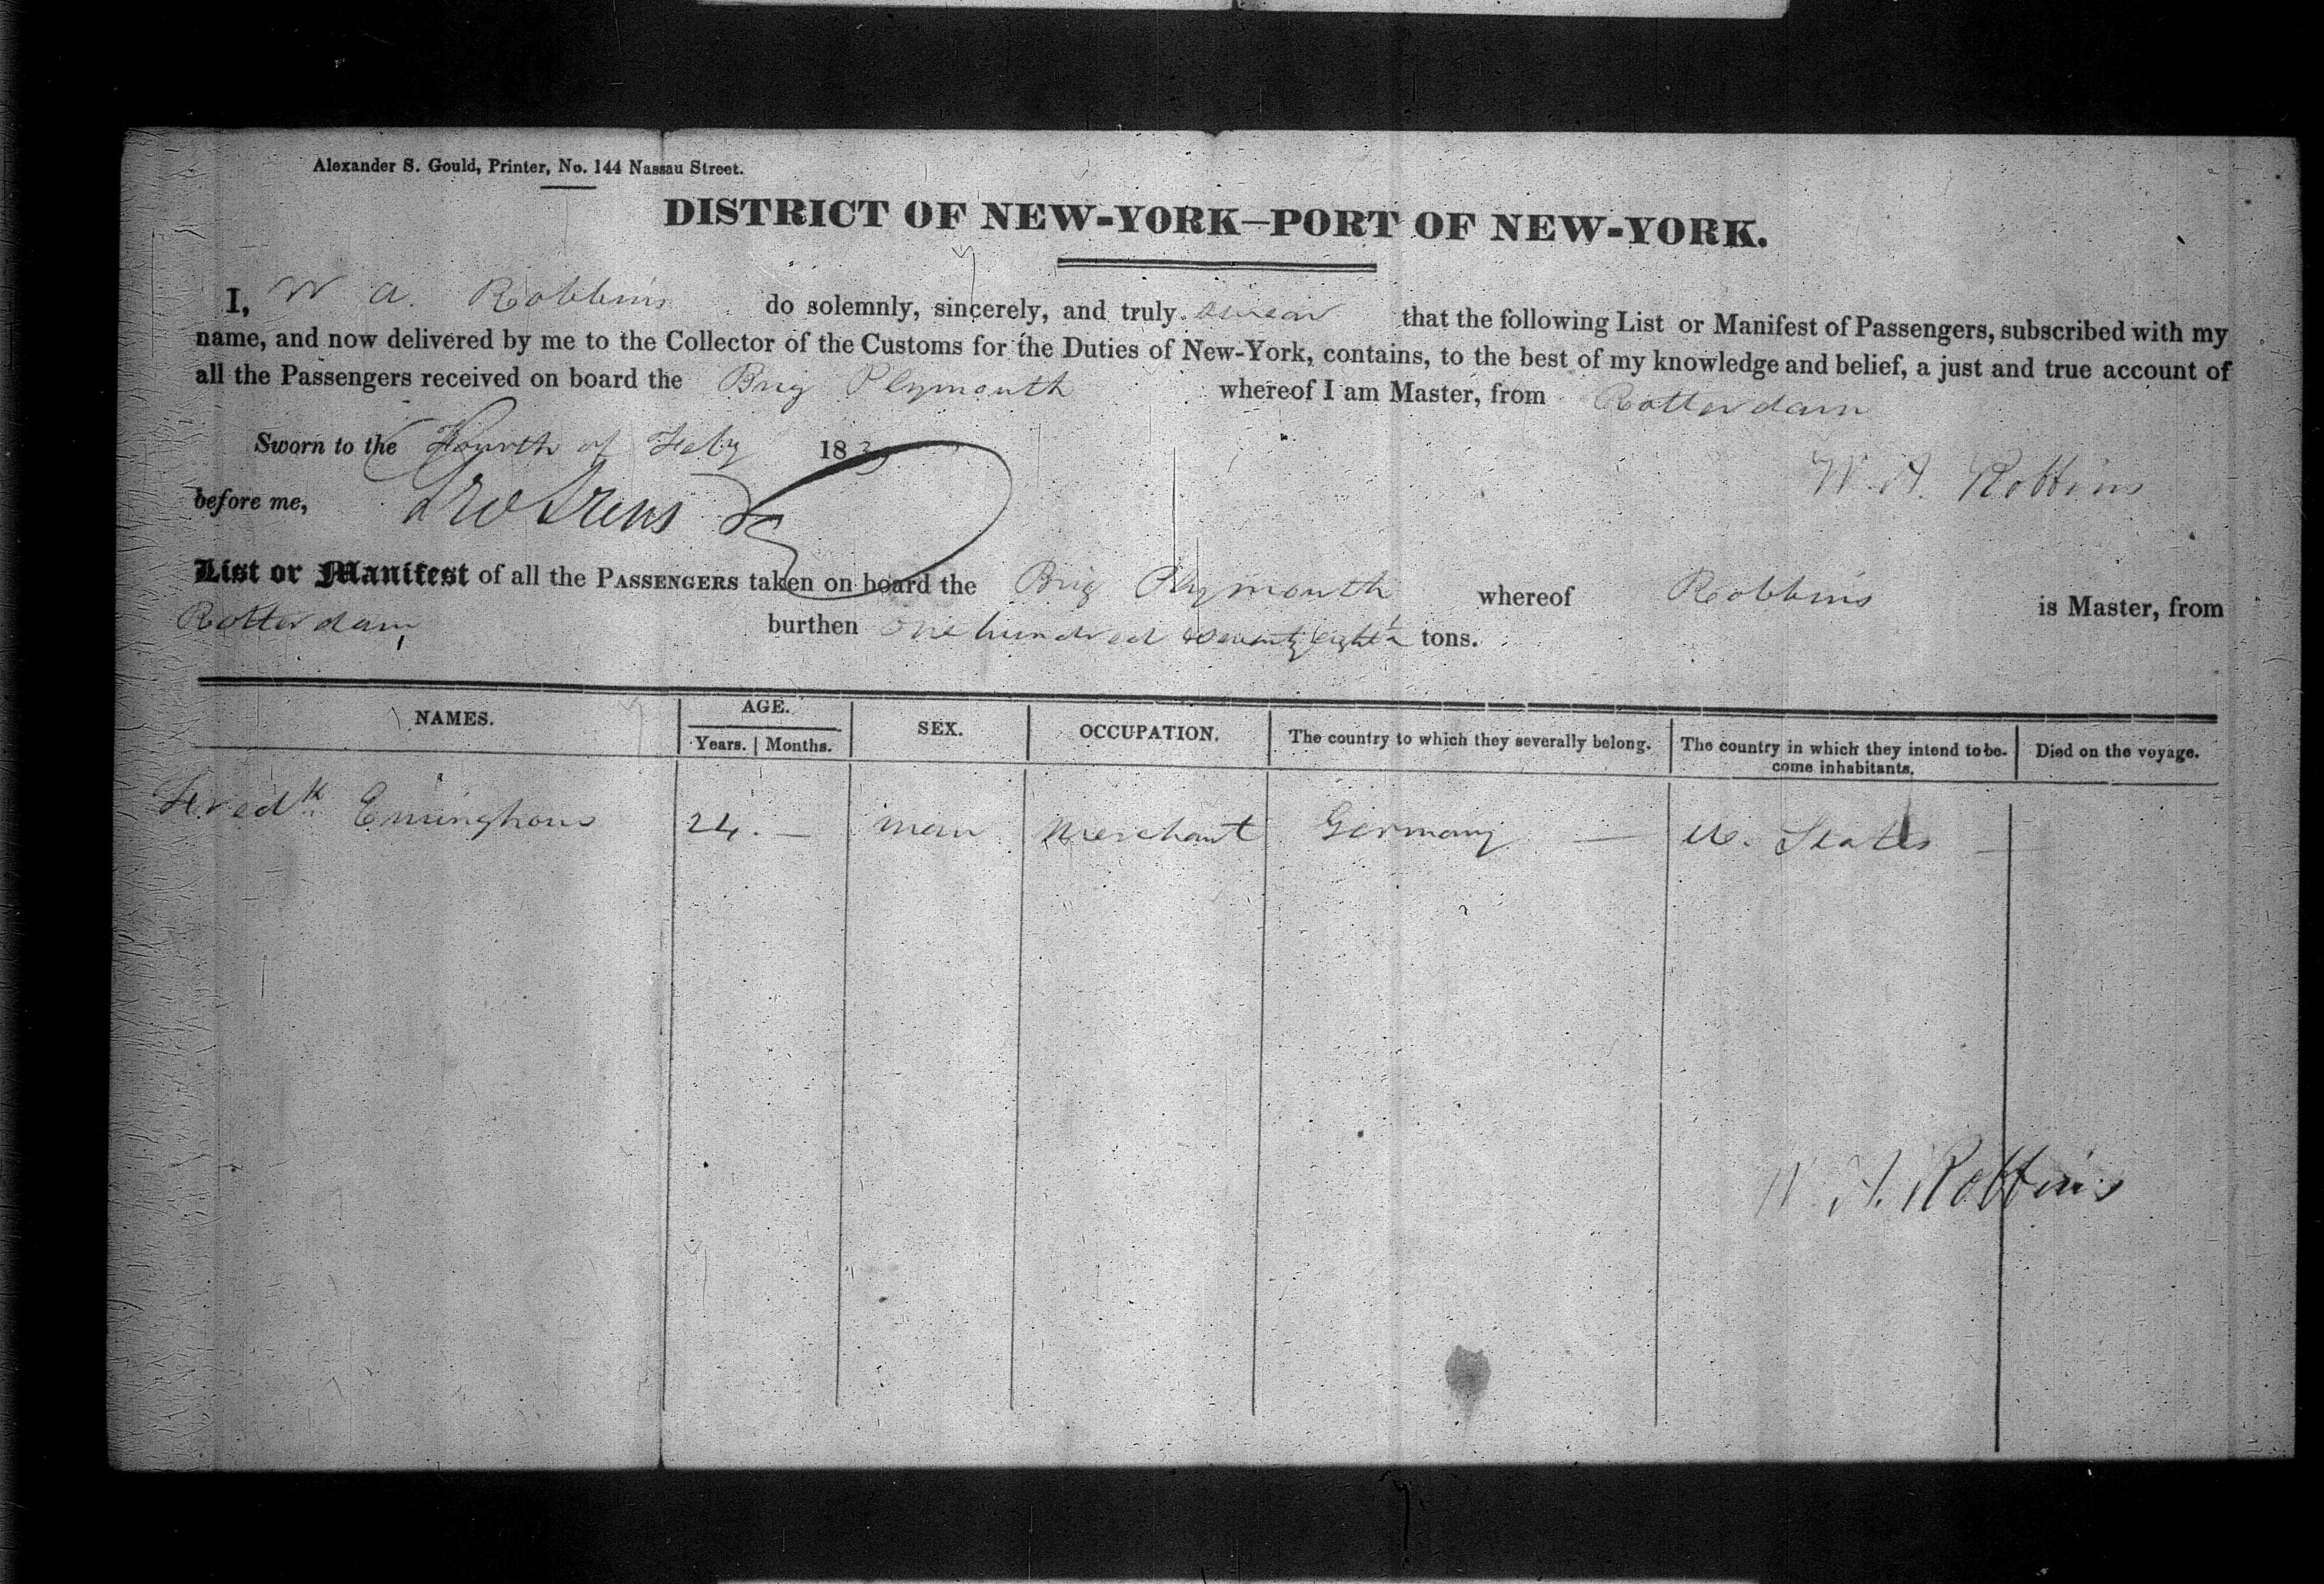 Alexander S. Gould, Printer, No. 144 Nassau Street.
DISTRICT OF NEW-YORK—PORT OF NEW-YORK.
I, W A. Robbins do solemnly, sincerely, and truly swear that the following List or Manifest of Passengers, subscribed with my
name, and now delivered by me to the Collector of the Customs for the Duties of New-York, contains, to the best of my knowledge and belief, a just and true account of
all the Passengers received on board the Brig Plymouth whereof I am Master, from Rotterdam
Sworn to the Fourth of Feby 183
W. A. Robbins
before me,
List or Manifest of all the PASSENGERS taken on board the Brig Plymouth whereof Robbins is Master, from
Rotterdam burthen one hundred seventy eight tons.
NAMES. AGE. SEX. OCCUPATION. The country to which they severally belong. The country in which they intend to be- Died on the voyage.
Years. Months. come inhabitants.
Fredk Emminghous 24. — man Merchant Germany — U. States —
W. A. Robbins